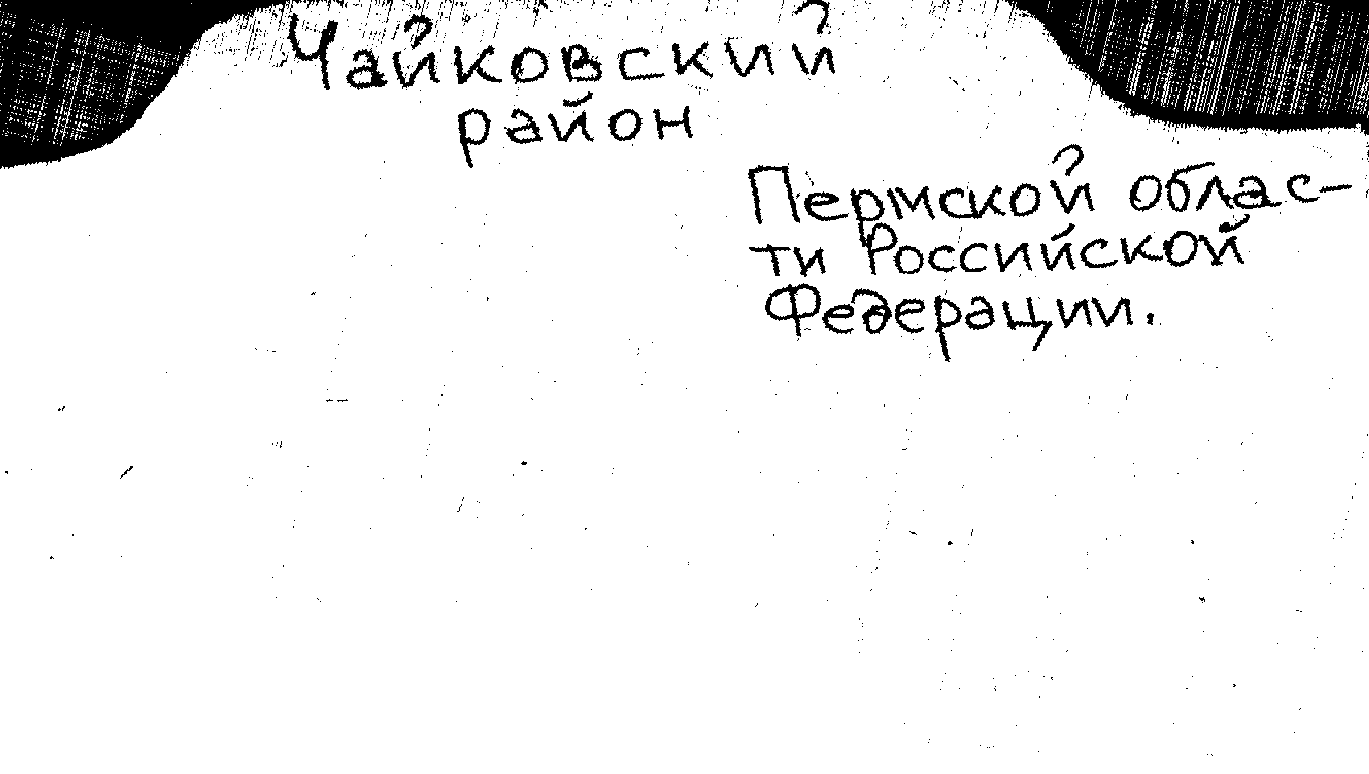 Чайковский
район
Пермской облас-
ти Российской
Федерации.